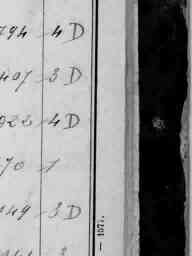 794 4 D
407 3 D
022 4 D
70 1
149 3 D
— 1071.